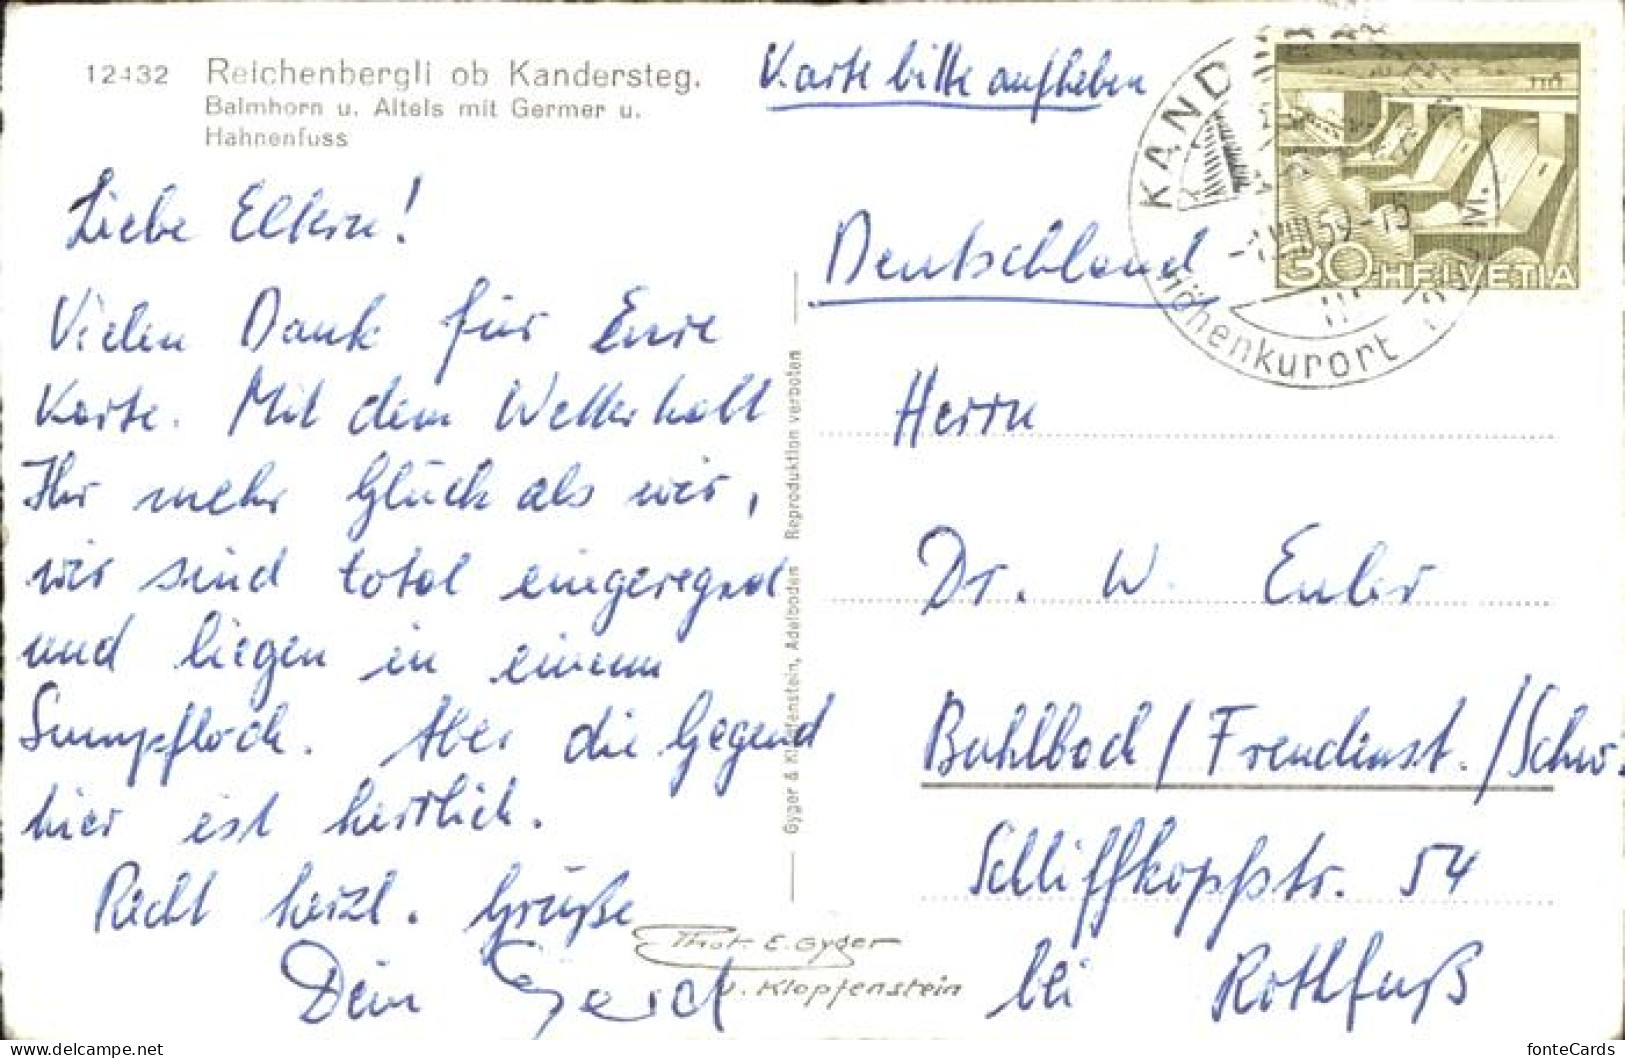 12432 Reichenbergli ob Kandersteg.
Balmhorn u. Altels mit Germer u.
Hahnenfuss
Karte bitte aufheben
Liebe Eltern!
Vielen Dank für Eure
Karte. Mit dem Wetter habt
Ihr mehr Glück als wir,
wir sind total eingeregnet
und liegen in einem
Sumpfloch. Aber die Gegend
hier ist herrlich.
Recht herzl. Grüße
Dein
Phot. E. Gyger
u. Klopfenstein
Gyger & Klopfenstein, Adelboden Reproduktion verboten
KAND
Höhenkurort
30 HELVETIA
Deutschland
Herrn
Dr. W. Euler
Buhlbach / Freudenst. / Schw.
Schliffkopfstr. 54
bei Rothfuß
fonteCards
https://www.delcampe.net